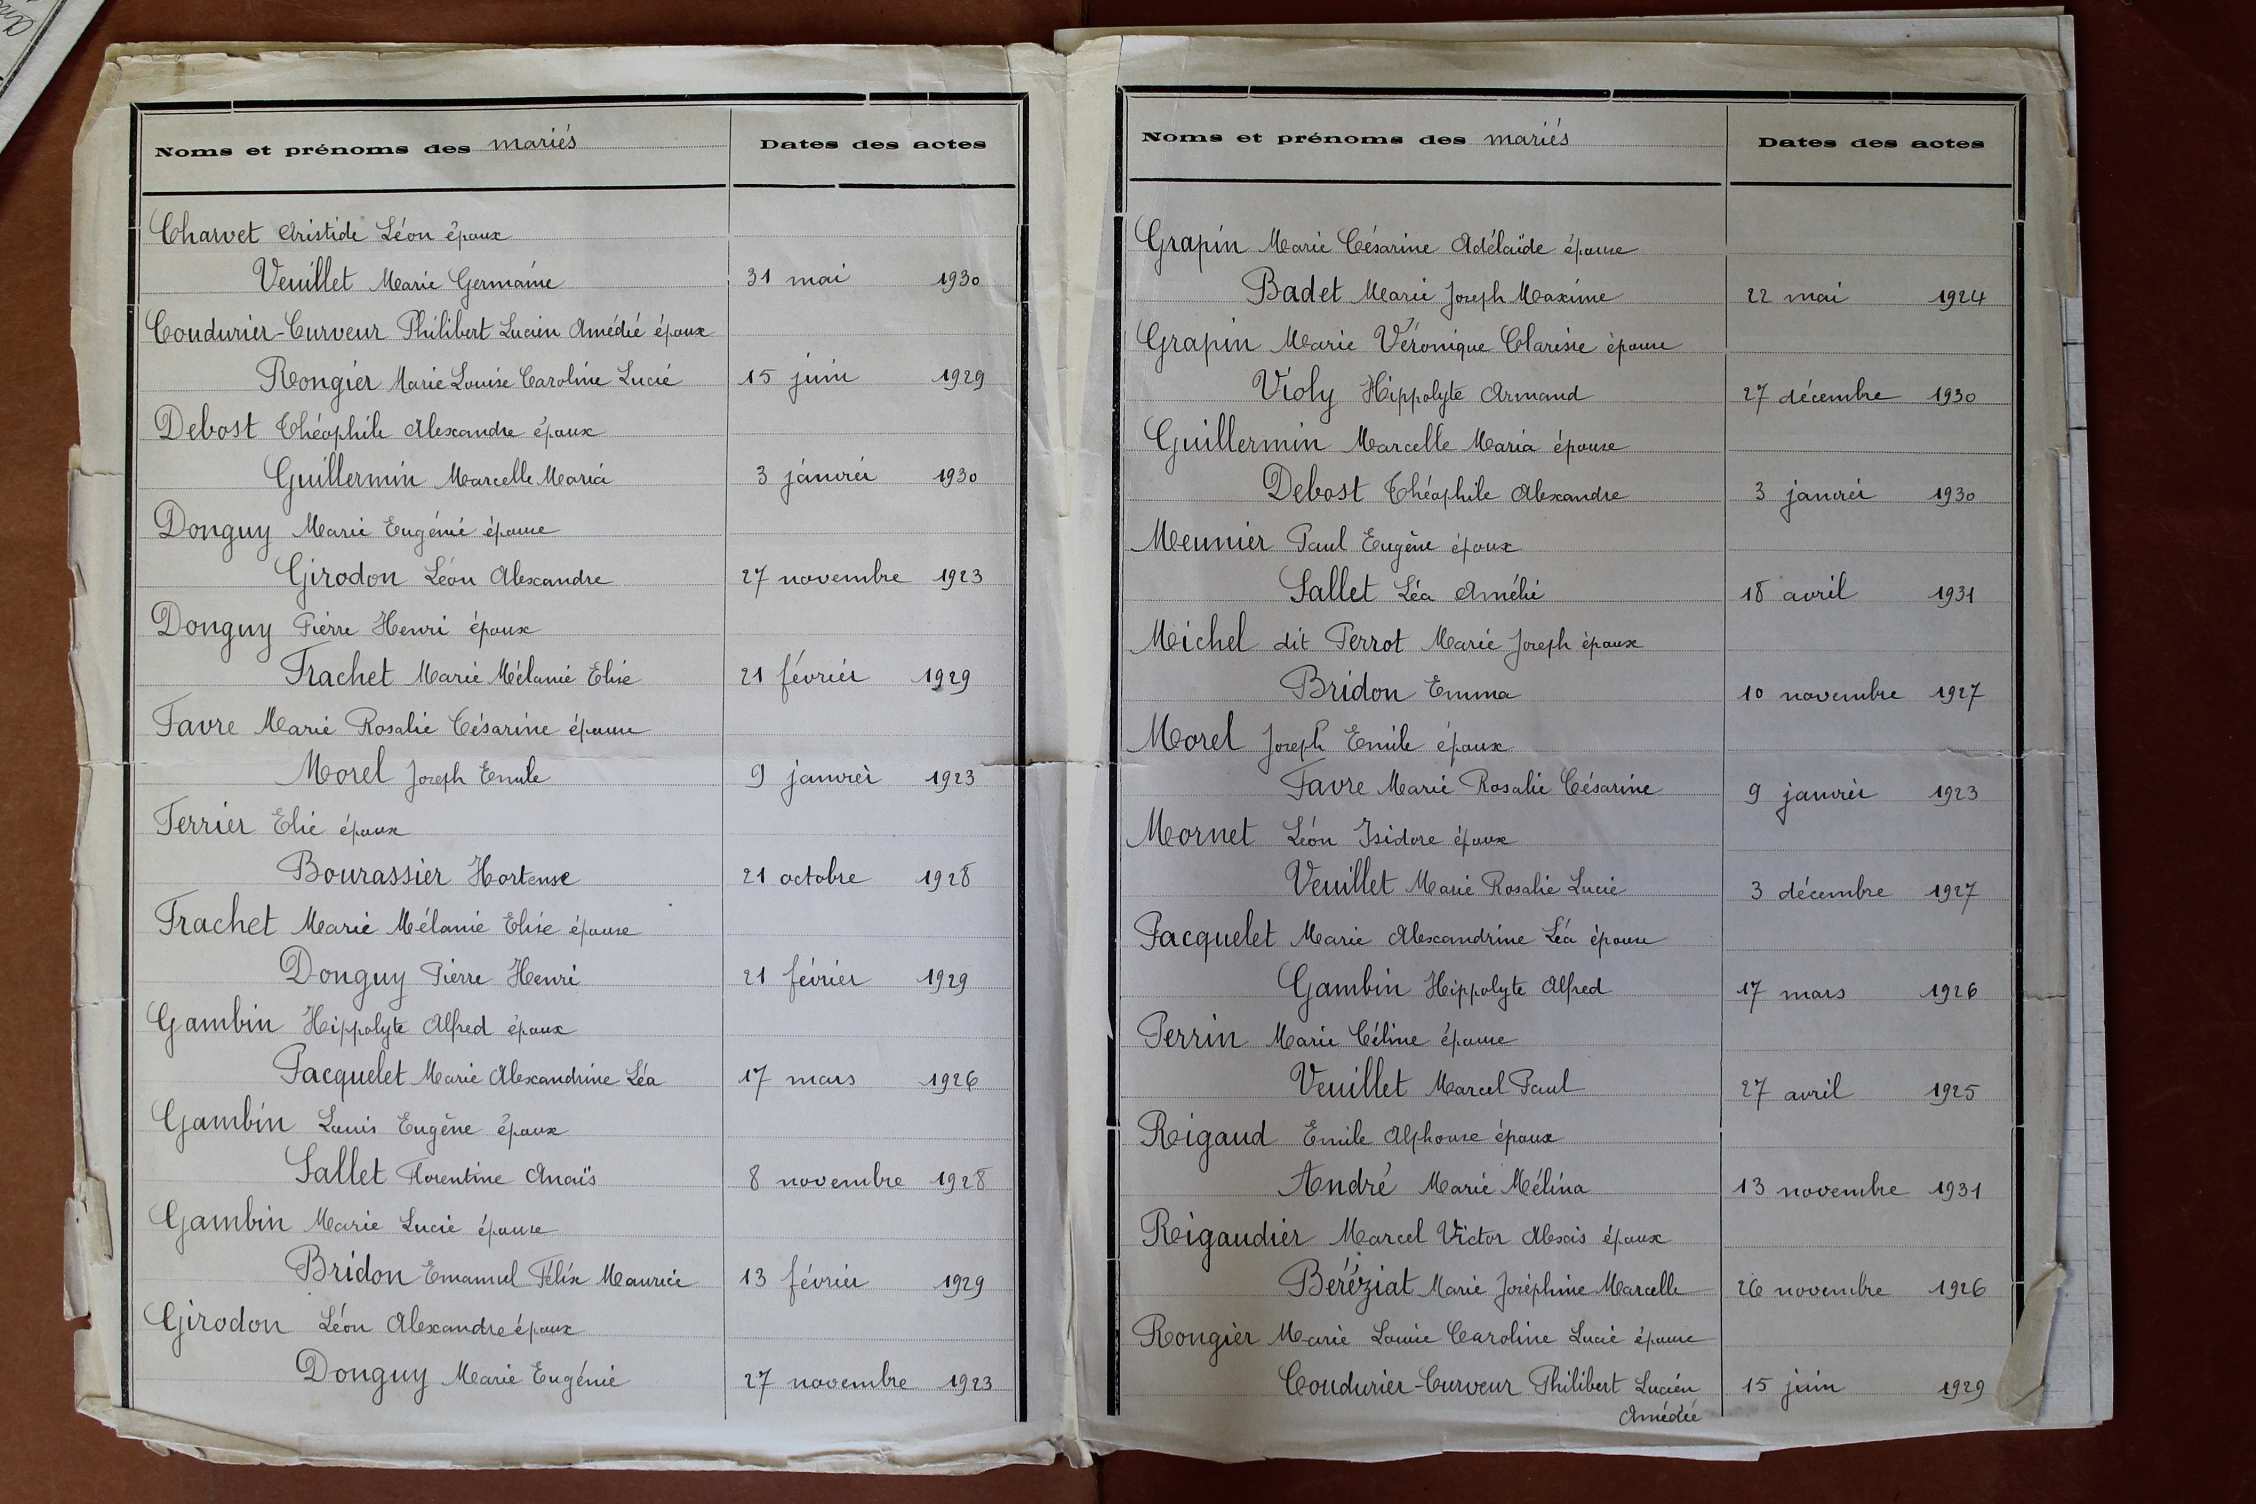 Noms et prénoms des mariés Dates des actes
Charvet Aristide Léon époux
Veuillet Marie Germaine 31 mai 1930
Coudurier-Curveur Philibert Lucien Amédée époux
Rongier Marie Louise Caroline Lucie 15 juin 1929
Debost Théophile Alexandre époux
Guillermin Marcelle Maria 3 janvier 1930
Donguy Marie Eugénie épouse
Girodon Léon Alexandre 27 novembre 1923
Donguy Pierre Henri époux
Frachet Marie Mélanie Elise 21 février 1929
Favre Marie Rosalie Césarine épouse
Morel Joseph Emile 9 janvier 1923
Ferrier Elie époux
Bourassier Hortense 21 octobre 1928
Frachet Marie Mélanie Elise épouse
Donguy Pierre Henri 21 février 1929
Gambin Hippolyte Alfred époux
Pacquelet Marie Alexandrine Léa 17 mars 1926
Gambin Louis Eugène époux
Sallet Florentine Anaïs 8 novembre 1928
Gambin Marie Lucie épouse
Bridon Emanuel Félix Maurice 13 février 1929
Girodon Léon Alexandre époux
Donguy Marie Eugénie 27 novembre 1923
Noms et prénoms des mariés Dates des actes
Grapin Marie Césarine Adélaïde épouse
Badet Marie Joseph Maxime 22 mai 1924
Grapin Marie Véronique Clarisse épouse
Violy Hippolyte Armand 27 décembre 1930
Guillermin Marcelle Maria épouse
Debost Théophile Alexandre 3 janvier 1930
Meunier Paul Eugène époux
Sallet Léa Amélie 18 avril 1931
Michel dit Perrot Marie Joseph époux
Bridon Emma 10 novembre 1927
Morel Joseph Emile époux
Favre Marie Rosalie Césarine 9 janvier 1923
Mornet Léon Isidore époux
Veuillet Marie Rosalie Lucie 3 décembre 1927
Pacquelet Marie Alexandrine Léa épouse
Gambin Hippolyte Alfred 17 mars 1926
Perrin Marie Céline épouse
Veuillet Marcel Paul 27 avril 1925
Rigaud Emile Alphonse époux
André Marie Mélina 13 novembre 1931
Rigaudier Marcel Victor Alexis époux
Beréziat Marie Joséphine Marcelle 26 novembre 1926
Rongier Marie Louise Caroline Lucie épouse
Coudurier-Curveur Philibert Lucien 15 juin 1929
Amédée